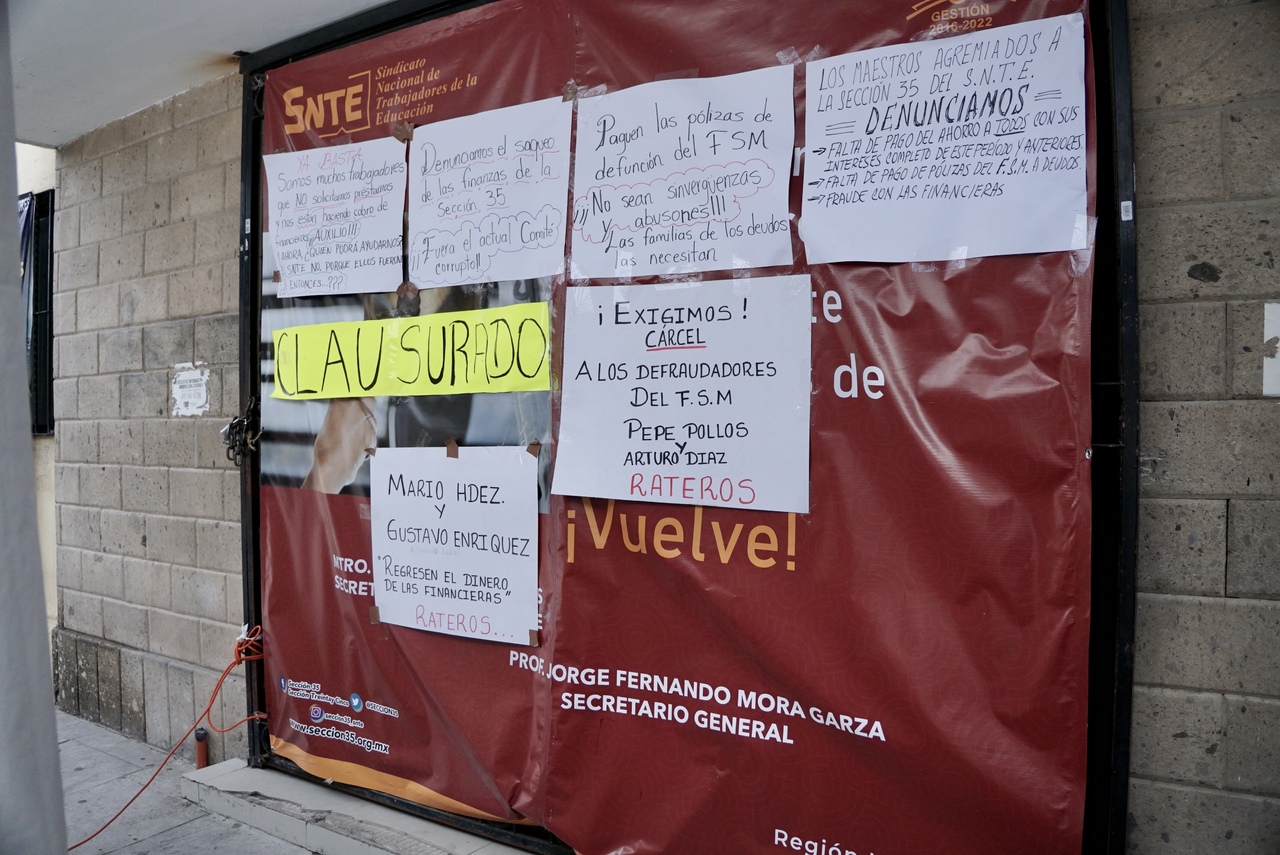 SNTE
Sindicato
Nacional de
Trabajadores de la
Educación
GESTIÓN
2016-2022
YA BASTA
Somos muchos trabajadores
que NO solicitamos préstamos
y nos están haciendo cobro de
financieras ¡AUXILIO!!!
AHORA, ¿QUIEN PODRÁ AYUDARNOS?
SNTE NO, PORQUE ELLOS FUERON
ENTONCES...???
Denunciamos el saqueo
de las finanzas de la
Sección 35
¡¡Fuera el actual Comité
corrupto!!
Paguen las pólizas de
defunción del FSM
¡¡¡No sean sinvergüenzas
y abusones!!!
Las familias de los deudos
las necesitan
LOS MAESTROS AGREMIADOS A
LA SECCIÓN 35 DEL S.N.T.E.
DENUNCIAMOS
→ FALTA DE PAGO DEL AHORRO A TODOS CON SUS
INTERESES COMPLETO DE ESTE PERÍODO Y ANTERIORES.
→ FALTA DE PAGO DE PÓLIZAS DEL F.S.M. A DEUDOS.
→ FRAUDE CON LAS FINANCIERAS
CLAUSURADO
¡EXIGIMOS!
CÁRCEL
A LOS DEFRAUDADORES
DEL F.S.M
PEPE POLLOS
Y
ARTURO DIAZ
RATEROS
te
de
MARIO HDEZ.
Y
GUSTAVO ENRIQUEZ
"REGRESEN EL DINERO
DE LAS FINANCIERAS"
RATEROS...
¡Vuelve!
NTRO.
SECRET
PROF. JORGE FERNANDO MORA GARZA
SECRETARIO GENERAL
Sección 35
Sección Treintay Cinco
@SECCION35
seccion35_snte
www.seccion35.org.mx
Región